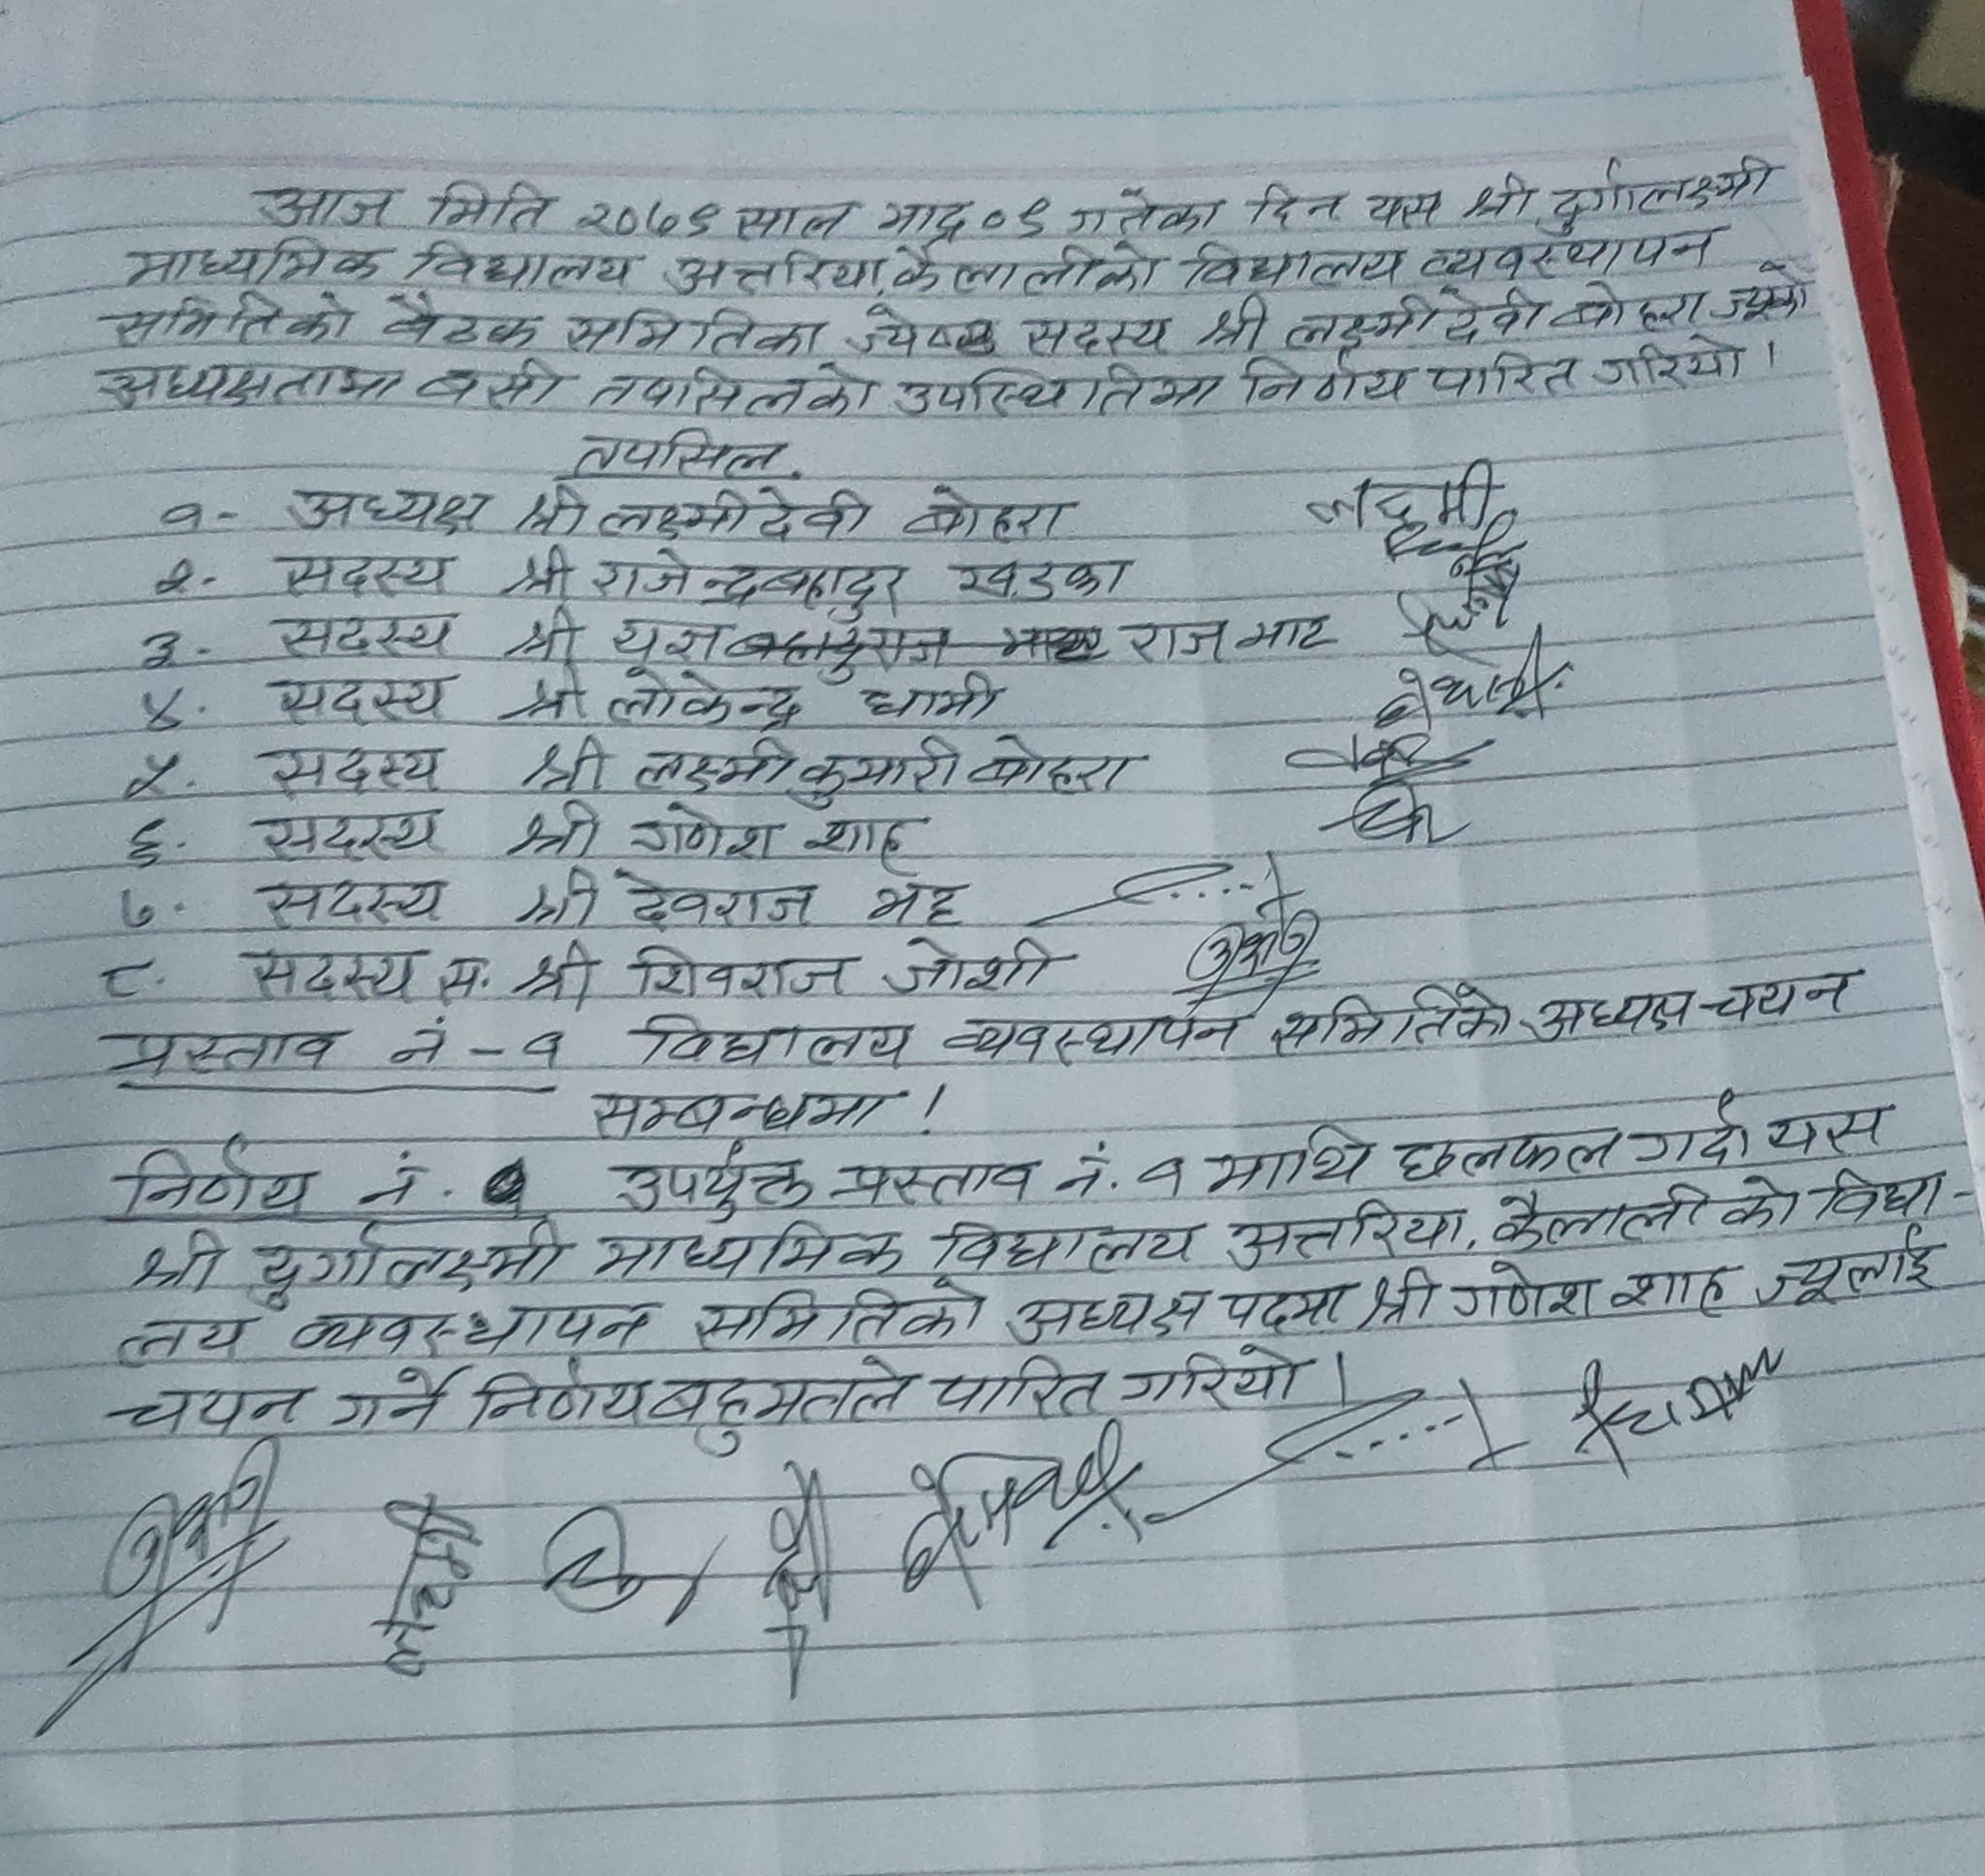 आज मिति २०७९ साल भाद्र ०९ गतेका दिन यस श्री दुर्गालक्ष्मी
माध्यमिक विद्यालय अत्तरिया, कैलालीको विद्यालय व्यवस्थापन
समितिको बैठक समितिका ज्येष्ठ सदस्य श्री लक्ष्मीदेवी बोहरा ज्यूको
अध्यक्षतामा बसी तपसिलको उपस्थितिमा निर्णय पारित गरियो।
तपसिल.
१- अध्यक्ष श्री लक्ष्मीदेवी बोहरा लक्ष्मी
२- सदस्य श्री राजेन्द्रबहादुर खड्का
३- सदस्य श्री यज्ञ राज भाट
४. सदस्य श्री लोकेन्द्र धामी
५. सदस्य श्री लक्ष्मी कुमारी बोहरा
६. सदस्य श्री गणेश शाह
७. सदस्य श्री देवराज भट्ट
८. सदस्य स. श्री शिवराज जोशी
प्रस्ताव नं - १ विद्यालय व्यवस्थापन समितिको अध्यक्ष चयन
सम्बन्धमा !
निर्णय नं. १ उपर्युक्त प्रस्ताव नं. १ माथि छलफल गर्दा यस
श्री दुर्गालक्ष्मी माध्यमिक विद्यालय अत्तरिया, कैलाली को विद्या-
लय व्यवस्थापन समितिको अध्यक्ष पदमा श्री गणेश शाह ज्यूलाई
चयन गर्ने निर्णय बहुमतले पारित गरियो।